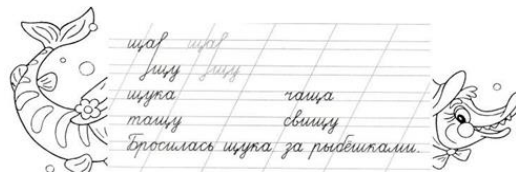 ща ща
щу щу
щука чаща
тащу свищу
Бросилась щука за рыбёшками.